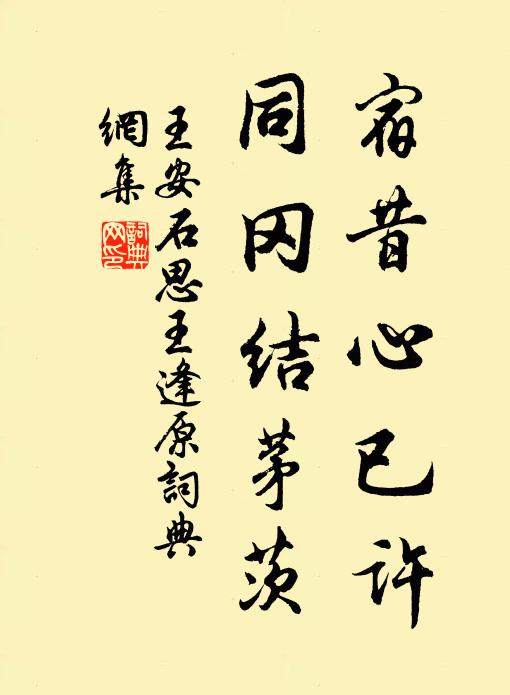 宿昔心已许
同冈结茅茨
王安石思王逢原詞典
網集
詞典
网印